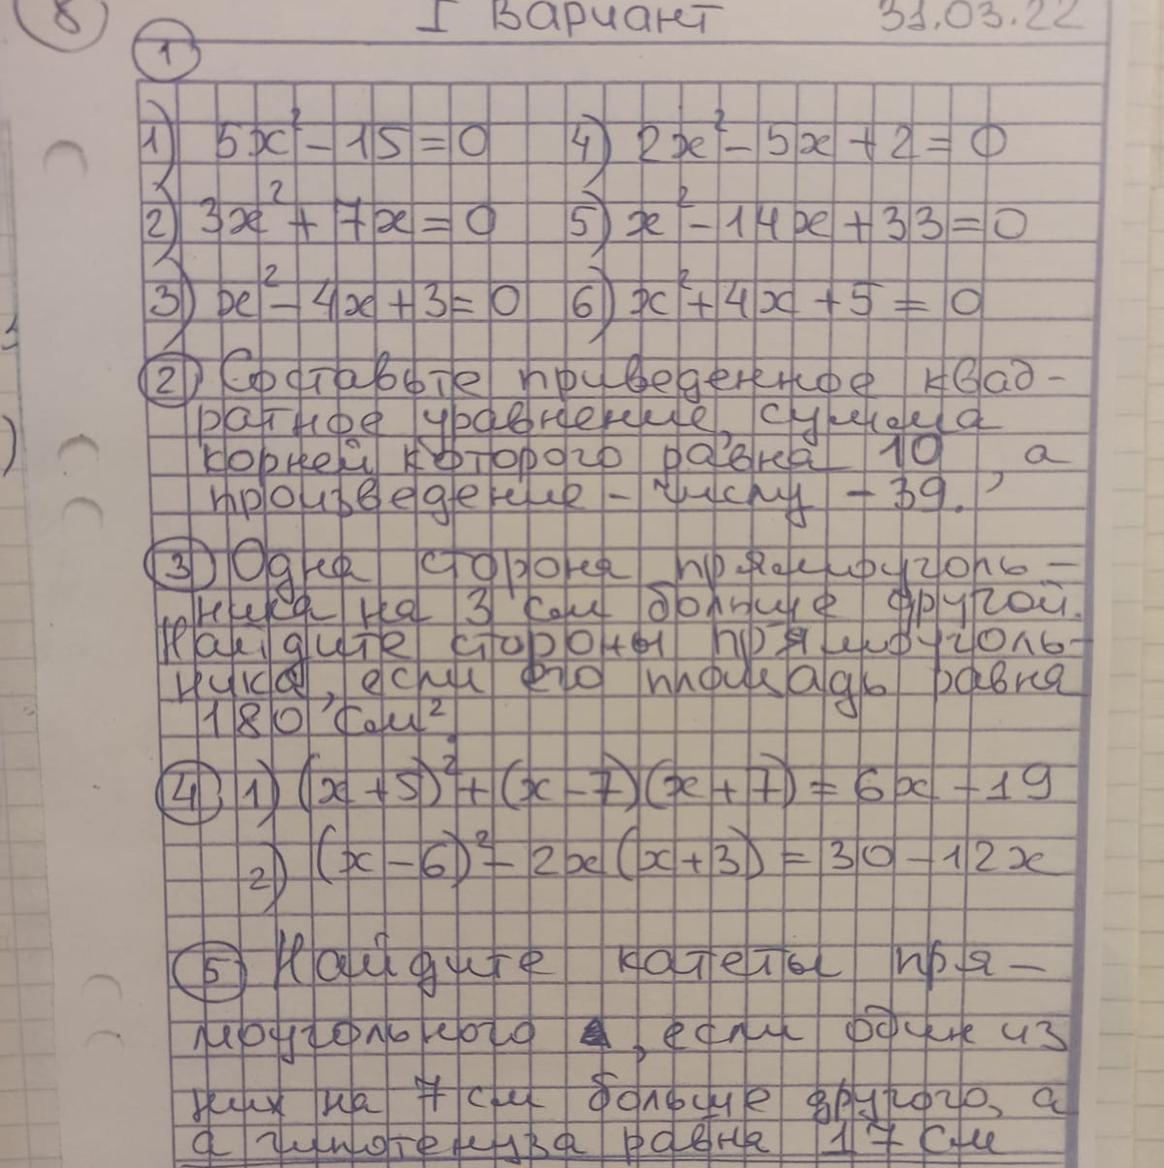 8
I Вариант 31.03.22
1
1) 5x² - 15 = 0 4) 2x² - 5x + 2 = 0
2) 3x² + 7x = 0 5) x² - 14x + 33 = 0
3) x² - 4x + 3 = 0 6) x² + 4x + 5 = 0
2 Составьте приведенное квад-
ратное уравнение, сумма
корней которого равна 10, а
произведение - числу -39.
3 Одна сторона прямоуголь-
ника на 3 см больше другой.
Найдите стороны прямоуголь-
ника, если его площадь равна
180 см².
4 1) (x+5)² + (x-7)(x+7) = 6x - 19
2) (x-6)² - 2x(x+3) = 30 - 12x
5 Найдите катеты пря-
моугольного ▲, если один из
них на 7 см больше другого, а
а гипотенуза равна 17 см